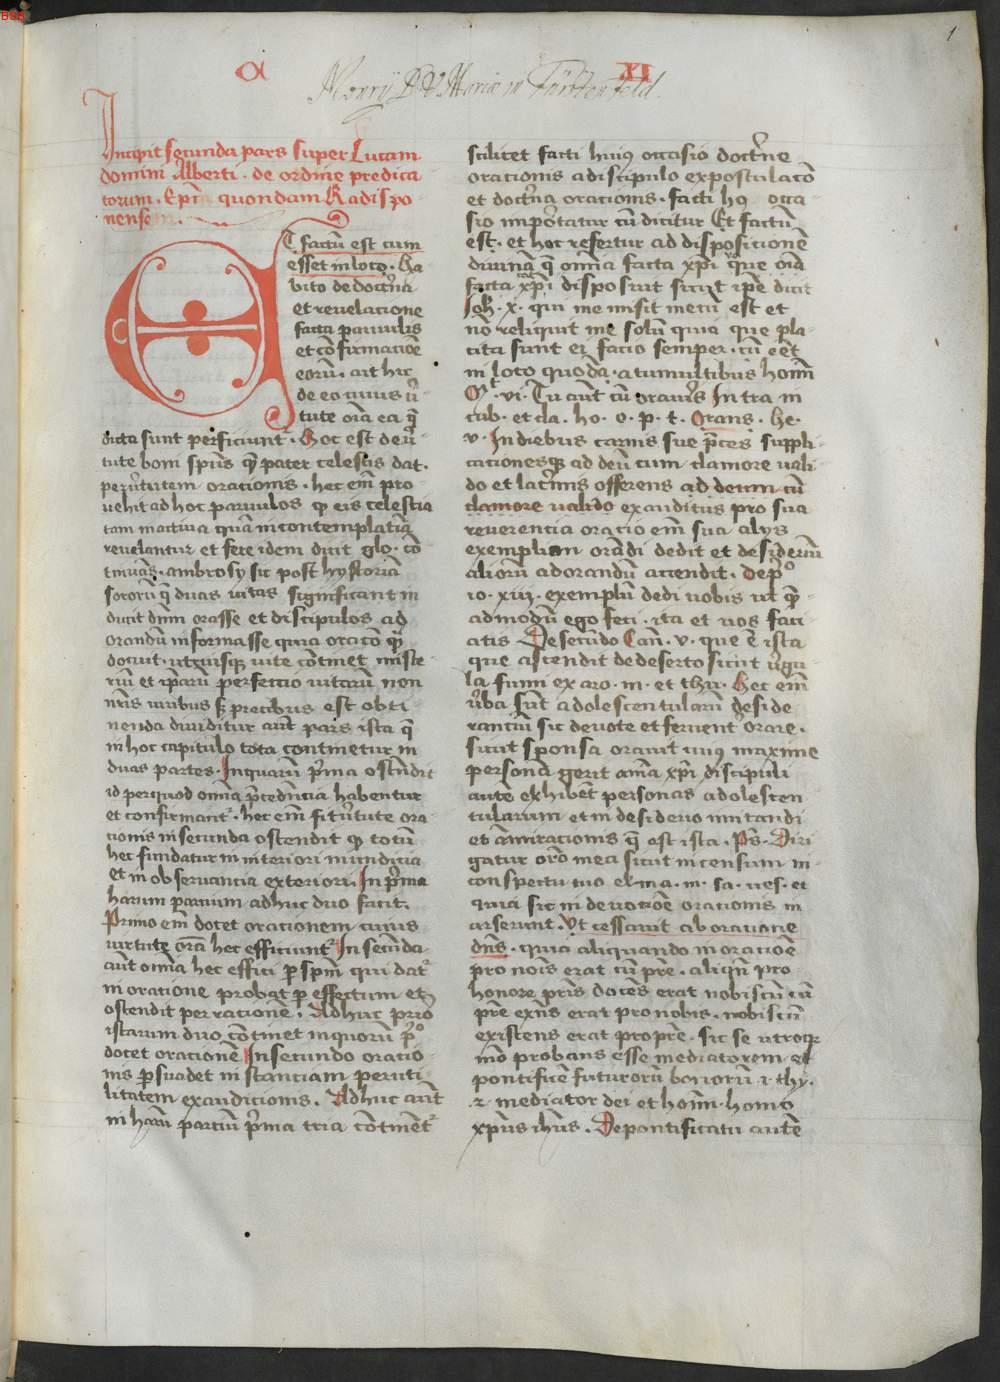 BSB
1
a XI
Monrij B. V. Mariæ in Fürstenfeld.
Incipit secunda pars super Lucam
domini Alberti · de ordine predica
torum · Ep̄m quondam Radispo
nensem ·
Et factū est cum
esset in loco · Ha
bito de doctͥna
et reuelatione
facta paruulis
et cōfirmatiōe
eorū · ait hic
de eo cuius ͮ̄
tute oīa ea q̄
dicta sunt perficiunt᷑ · Hoc est de ū
tute boni spūs quē pater celestis dat ·
per ūtutem orationis · hec em̄ pro
uehit ad hoc paruulos qꝫ eis celestia
tam in actiua quā in contemplatiua
reuelantur et fere idem dicit glo · cō
tinuās · ambrosij sic post hystoriā
sororū q̄ duas uitas significant in
ducit dn̄m orasse et discipulos ad
orandū informasse quia oratō quā
docuit · utriusqꝫ uite cōtinet miste
riū et ip̄arū perfectio uitarū non
nr̄is uiribus sꝫ precibus est obti
nenda diuiditur aūt pars ista q̄
in hoc capitulo tota continetur in
duas partes · In quarū pͥma ostēdit
id per quod omīa p̄cedēncia habentur
et confirmant᷑ · hec em̄ fit ūtute ora
tionis in secunda ostendit qꝫ totū
hec fundatur in interiori mundicia
et in obseruancia exteriori · In pͥma
harum parcium adhuc duo facit ·
Primo em̄ docet orationem cuius
uirtute oīa hec efficiunt᷑ In secūda
aūt omīa hec effici ꝑ spm̄ qui dat᷑
in oratione probat ꝑ effectum et
ostendit per racionē · Adhuc prīo
istarum duo cōtinet in quorū pͦ
docet oratione In secundo oratio
nis ꝑsuadet instanciam per uti
litatem exauditionis · Adhuc aūt
in harū partiū pͥma tria cōtinēt᷑
scilicet facti huiꝰ occasio doctͥne
orationis a discipulo expostulacō
et doctͥna orationis · facti hꝰ occa
sio importatur cū dicitur Et factū
est · et hoc refertur ad dispositionē
diuinā q̄ omīa facta xp̄i
facta xp̄i disposuit sicut ip̄e dicit
Joh · x · qui me misit mecū est et
nō reliquit me solū quia que pla
cita sunt ei facio semper · cū eēt
in loco quodā · a tumultibus hoīm
Mͭ · vi · Tu aūt cū oraueris Intra in
cub · et cla · ho · o · p · t · Orans · he ·
v · In diebus carnis sue p̄ces suppli
cationesqꝫ ad deū cum clamore uali
do et lacͥmis offerens ad deum cū
clamore ualido exauditus pro sua
reuerencia oratio em̄ sua alijs
exemplum orādi dedit et desideriū
aliorū ad orandū accendit · De pͦ
io · xiij · exemplū dedi uobis ut quē
admodū ego feci · ita et uos faci
atis De secūdo Can̄ · v · que ē ista
que ascendit de deserto sicut ūgu
la fumi ex aro · m · et thu · Hec em̄
ūba sūt adolescentularū deside
rantiū sic deuote et feruent᷑ orare ·
sicut sponsa orauit cuiꝰ maxime
personā gerit aīma xp̄i discipuli
autē exhibēt personas adolescen
tularum et in desiderio imitandi
et amiracionis q̄ est ista · Ps̄ · Diri
gatur orō mea sicut incensum in
conspectu tuo el · ma · m · sa · ues · et
quia sic in deuotiōe orationis in
arserunt · Ut cessauit ab oratione
dn̄s · quia aliquando in oratiōe
pro nobis erat cū pr̄e · aliqn̄ pro
honore pr̄is docēs erat nobiscū cū
pr̄e exn̄s erat pro nobis · nobiscū
existens erat pro pr̄e · sic se utroqꝫ
mō probans esse mediatorem et
pontificē futurorū bonorū · 1 · thy ·
2 · mediator dei et hoīm · homo
xp̄us ih̄us · De pontificatu autē